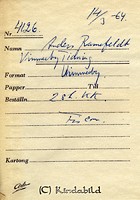 14/3 -64.
No 4126.
Namn Anders Ramefeldt
Vimmerby Tidning
Format Vimmerby
Papper Till
Beställn. 2 st. VK.
Kartong
© Kindabild